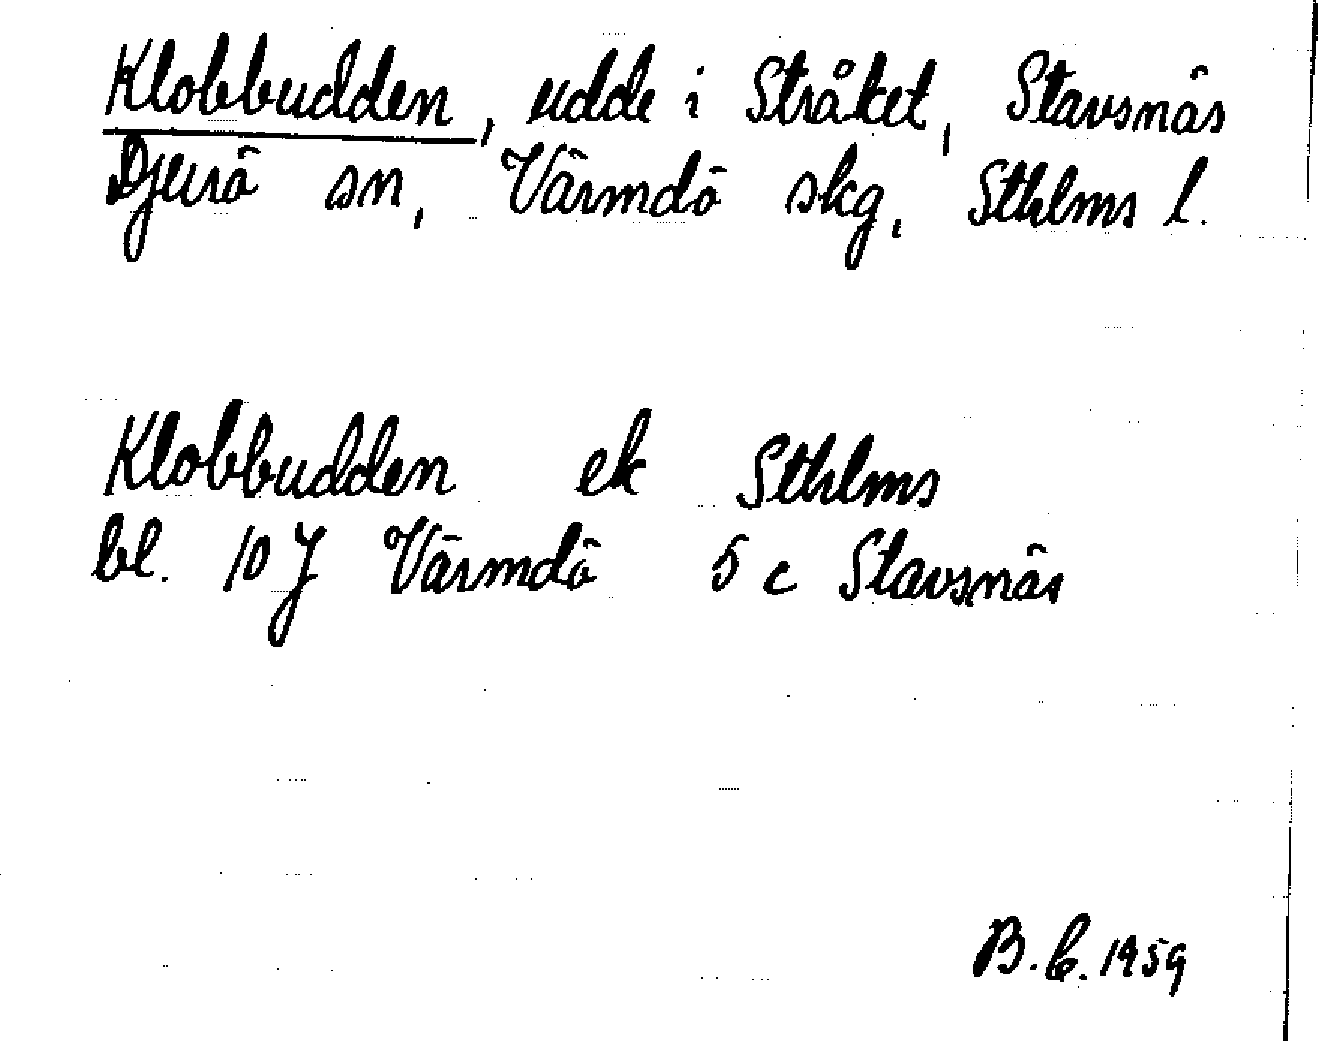 Klobbudden, udde i Stråket, Stavsnäs
Djurö sn, Värmdö skg, Sthlms l.
Klobbudden ek Sthlms
bl. 10 J Värmdö 5 c Stavsnäs
B.C. 1959